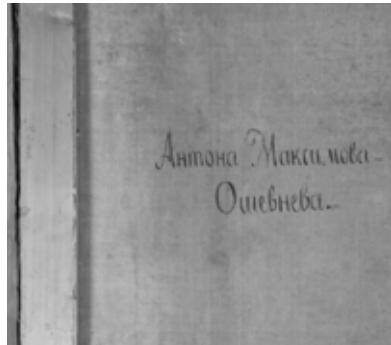 Антона Максимова-
Ошевнева.